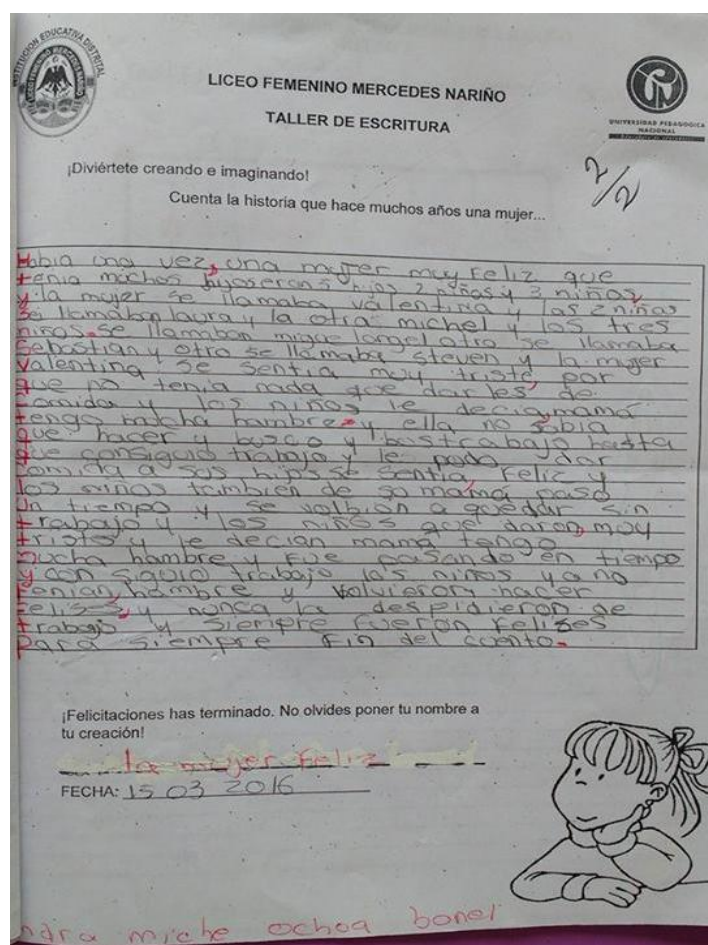 INSTITUCION EDUCATIVA DISTRITAL
LICEO FEMENINO MERCEDES NARIÑO
TALLER DE ESCRITURA
UNIVERSIDAD PEDAGOGICA
NACIONAL
¡Diviértete creando e imaginando!
2/2
Cuenta la historia que hace muchos años una mujer...
Habia una vez, una mujer muy Feliz que
tenia muchos hijos eran 5 hijos 2 niñas y 3 niños,
y la mujer se llamaba valentina y las 2 niñas
se llamaban laura y la otra michel y los tres
niños. se llamaban migue langel otro se llamaba
Sebastian y otro se llamaba steven y la mujer
Valentina se sentia muy triste, por
que no tenia nada que dar les de
comida y los niños le decia, mamá
tengo mucha hambre y ella no sabia
que hacer y busco y trabajo hasta
que consiguio trabajo y le pudo dar
comida a sus hijos se sentia, Feliz y
los niños tambien de su mamá paso
Un tiempo y se volbion a quedar sin
trabajo y los niños que daron, muy
tristes y le decian mamá tengo
mucha hambre y Fue pasando en tiempo
y con siguio trabajo los niños ya no
Tenian, hambre y volvieron hacer
Felises, y nunca la despidieron de
trabajo y siempre fueron Felizes
Para siempre Fin del cuento.
¡Felicitaciones has terminado. No olvides poner tu nombre a
tu creación!
la mujer Feliz
FECHA: 15 03 2016
ndra miche ochoa bonel